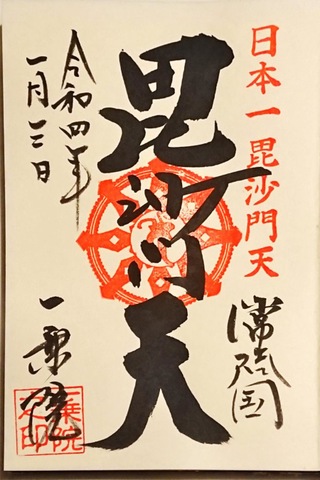 日本一 毘沙門天
常陸国
毘沙門天
令和四年
一月三日
一乗院
一乗院